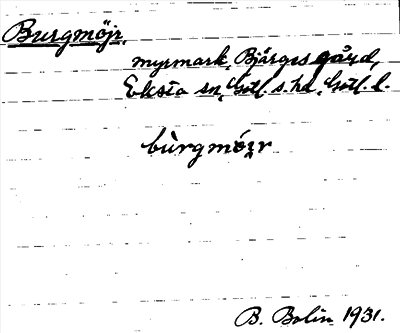 Burgmöjr.
myrmark, Bjärges gård,
Eksta sn, Gotl. s. hd, Gotl. l.
bùrgmöi̯r
B. Bolin 1931.